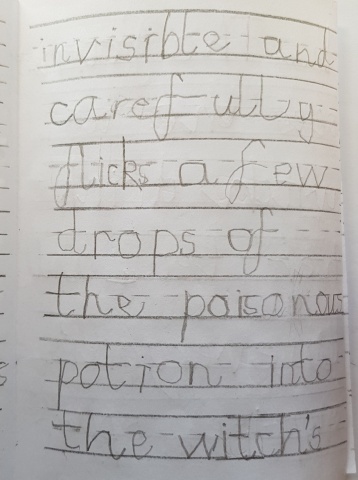 invisible and
carefully
flicks a few
drops of
the poisonous
potion into
the witch's